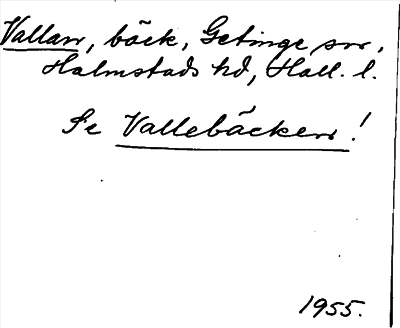 Vallan, bäck, Getinge sn,
Halmstads hd, Hall. l.
Se Vallebäcken!
1955.